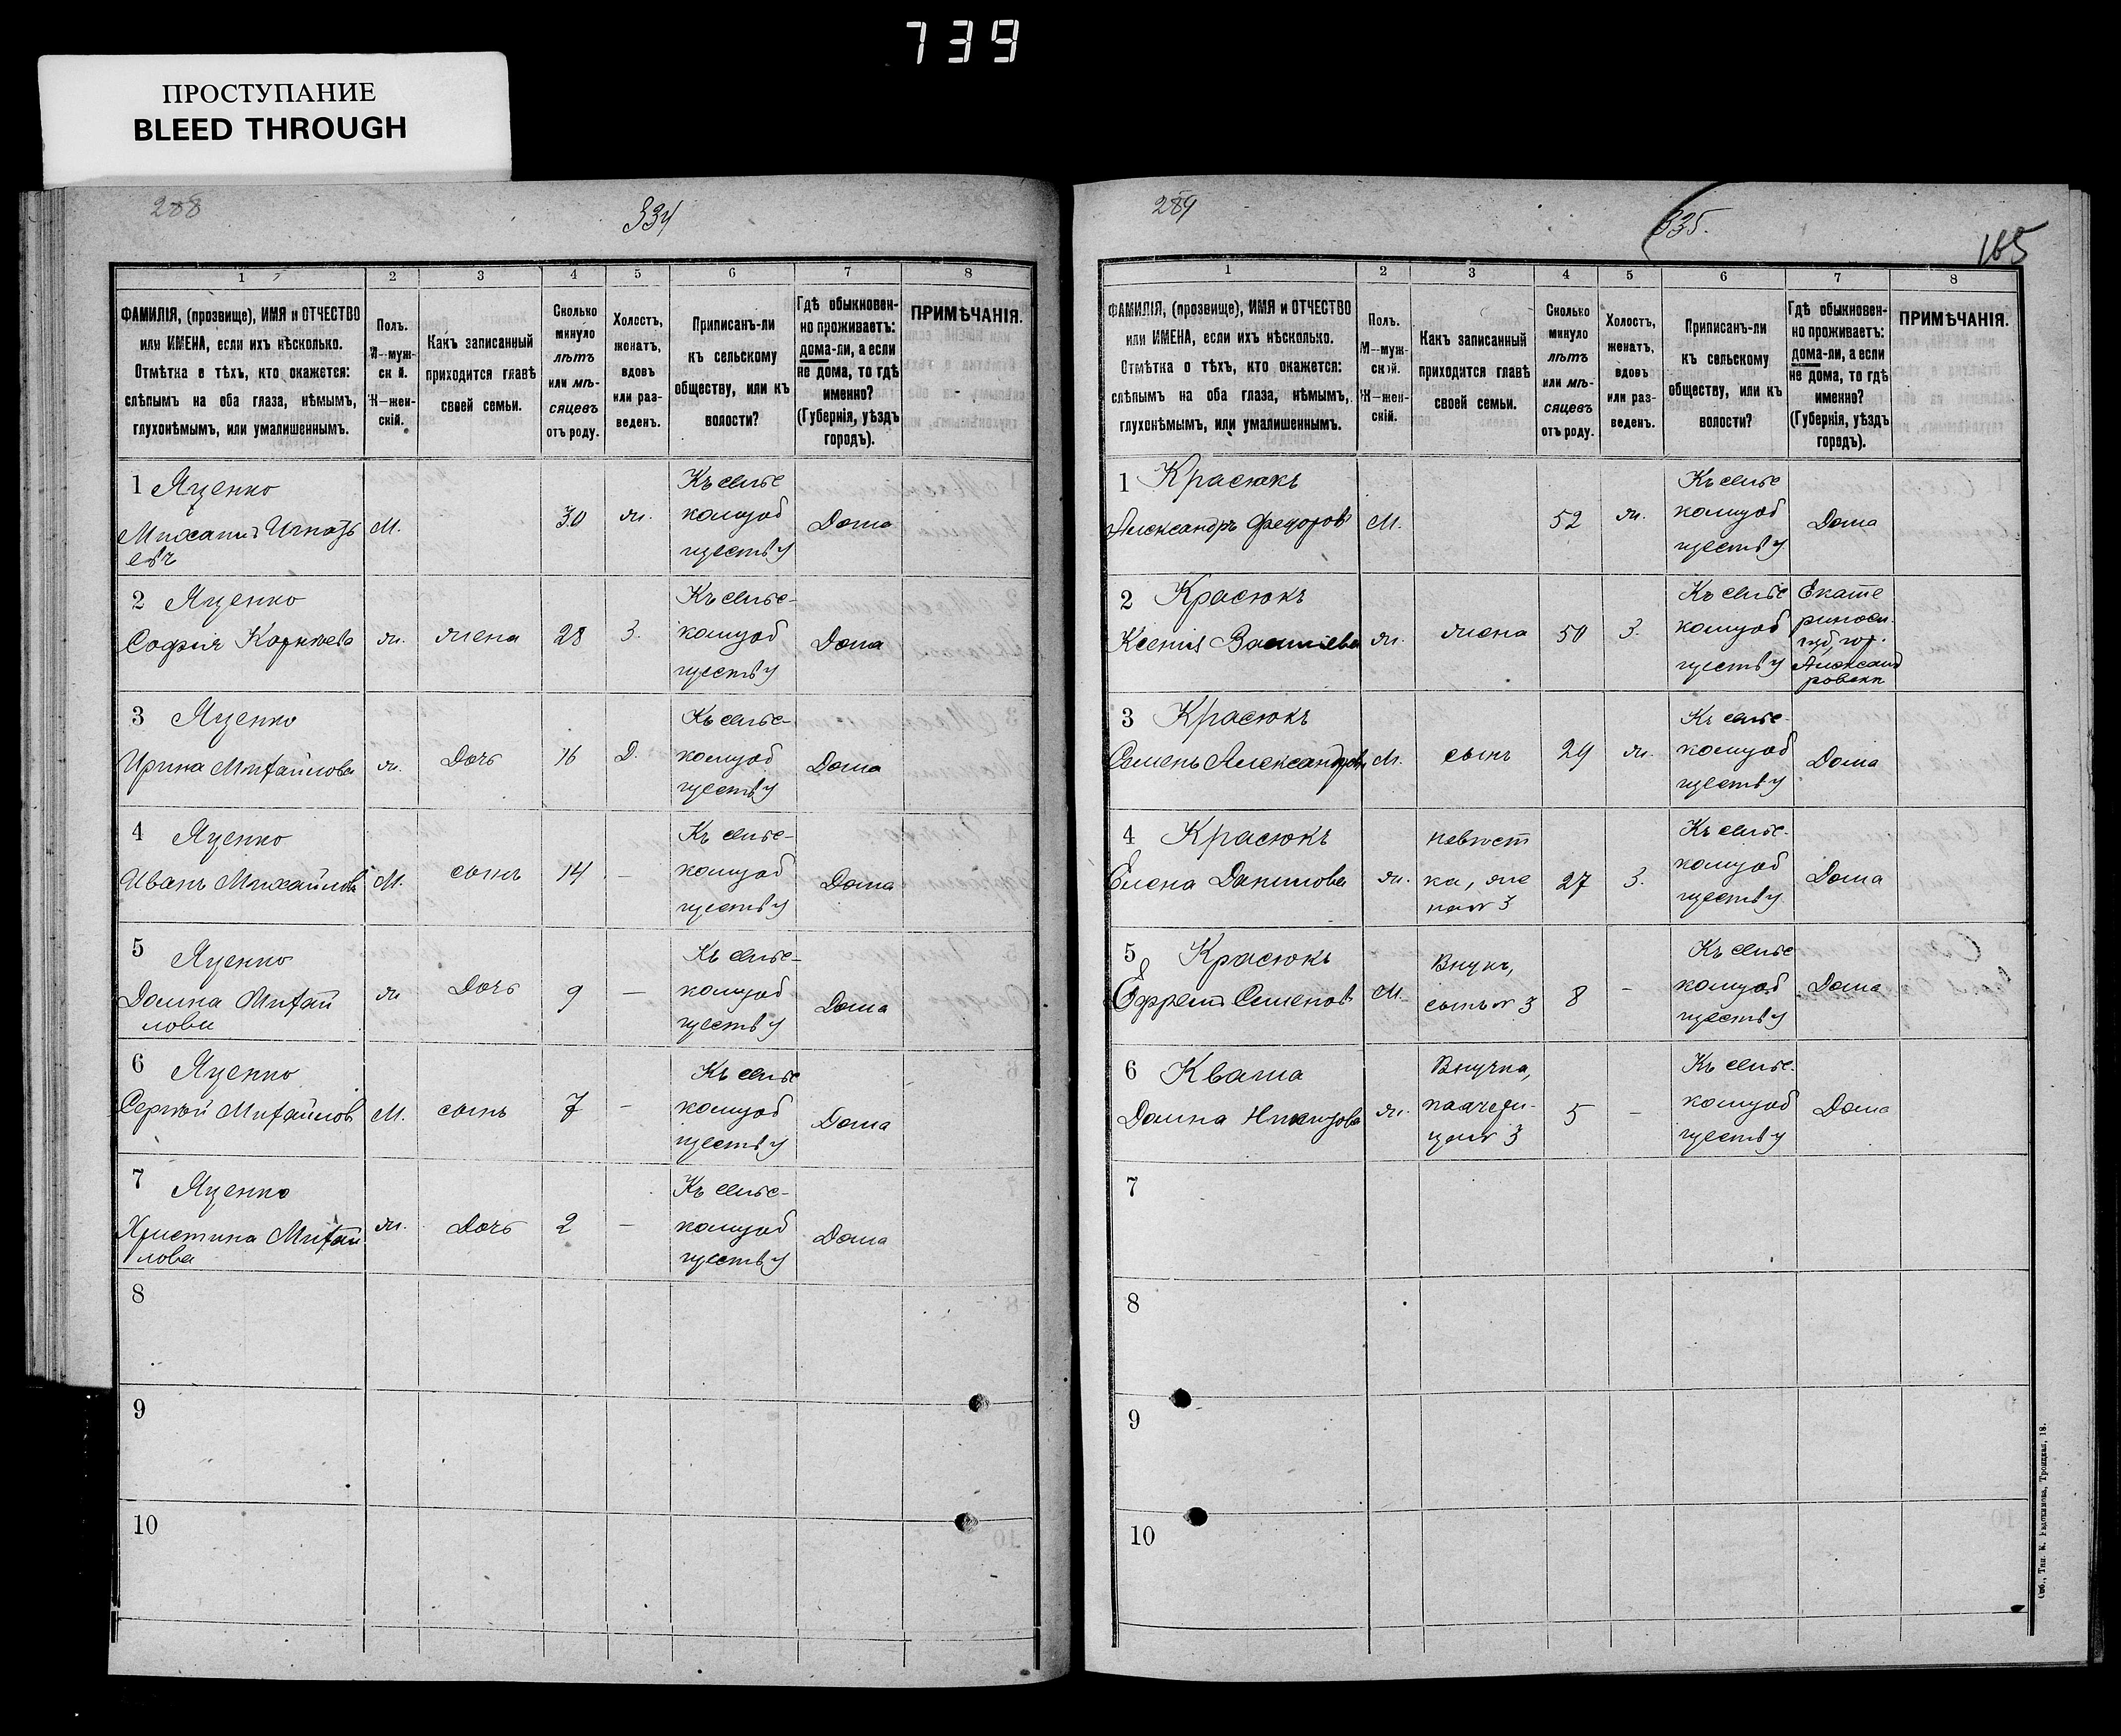 739
ПРОСТУПАНИЕ
BLEED THROUGH
288
334
1 2 3 4 5 6 7 8
ФАМИЛІЯ, (прозвище), ИМЯ и ОТЧЕСТВО
или ИМЕНА, если ихъ нѣсколько.
Отмѣтка о тѣхъ, кто окажется:
слѣпымъ на оба глаза, нѣмымъ,
глухонѣмымъ, или умалишеннымъ.
Полъ.
М—муж-
ской.
Ж—жен-
скій.
Какъ записанный
приходится главѣ
своей семьи.
Сколько
минуло
лѣтъ
или мѣ-
сяцевъ
отъ роду.
Холостъ,
женатъ,
вдовъ
или раз-
веденъ.
Приписанъ-ли
къ сельскому
обществу, или къ
волости?
Гдѣ обыкновен-
но проживаетъ:
дома-ли, а если
не дома, то гдѣ
именно?
(Губернія, уѣздъ
городъ).
ПРИМѢЧАНІЯ.
1 Яценко
Михаилъ Игнатье
евъ
М.
30
ж.
Къ сельс
комуоб
ществу
Дома
2 Яценко
Софія Корнѣева
ж.
жена
28
З.
Къ сельс-
комуоб
ществу
Дома
3 Яценко
Ирина Михайлова
ж.
Дочь
16
Д.
Къ сельс-
комуоб
ществу
Дома
4 Яценко
Иванъ Михайловъ
М.
сынъ
14
—
Къ сельс-
комуоб
ществу
Дома
5 Яценко
Домна Михай
лова
ж
Дочь
9
—
Къ сельс-
комуоб
ществу
Дома
6 Яценко
Сергѣй Михайловъ
М.
сынъ
7
—
Къ сельс
комуоб
ществу
Дома
7 Яценко
Христина Михай
лова
ж.
Дочь
2
—
Къ сельс-
комуоб
ществу
Дома
8
9
10
289
335.
165
1 2 3 4 5 6 7 8
ФАМИЛІЯ, (прозвище), ИМЯ и ОТЧЕСТВО
или ИМЕНА, если ихъ нѣсколько.
Отмѣтка о тѣхъ, кто окажется:
слѣпымъ на оба глаза, нѣмымъ,
глухонѣмымъ, или умалишеннымъ.
Полъ.
М—муж-
ской.
Ж—жен-
скій.
Какъ записанный
приходится главѣ
своей семьи.
Сколько
минуло
лѣтъ
или мѣ-
сяцевъ
отъ роду.
Холостъ,
женатъ,
вдовъ
или раз-
веденъ.
Приписанъ-ли
къ сельскому
обществу, или къ
волости?
Гдѣ обыкновен-
но проживаетъ:
дома-ли, а если
не дома, то гдѣ
именно?
(Губернія, уѣздъ
городъ).
ПРИМѢЧАНІЯ.
1 Красюкъ
Александръ Федоровъ
М.
52
ж.
Къ сельс
комуоб
ществу
Дома
2 Красюкъ
Ксенія Васильева
ж.
жена
50
З.
Къ сельс
комуоб
ществу
Екате
риносл.
губ, гор.
Александ
ровскъ
3 Красюкъ
Семенъ Александровъ
М.
сынъ
29
ж.
Къ сельс-
комуоб
ществу
Дома
4 Красюкъ
Елена Данилова
ж.
невѣст
ка, же
на № 3
27
З.
Къ сельс-
комуоб
ществу
Дома
5 Красюкъ
Ефремъ Семеновъ
М.
Внукъ,
сынъ № 3
8
—
Къ сельс
комуоб
ществу
Дома
6 Кваша
Домна
ж.
Внучка,
падчери-
ца № 3
5
—
Къ сельс-
комуоб
ществу
Дома
7
8
9
10
Спб., Тип. К. Троицкая, 18.